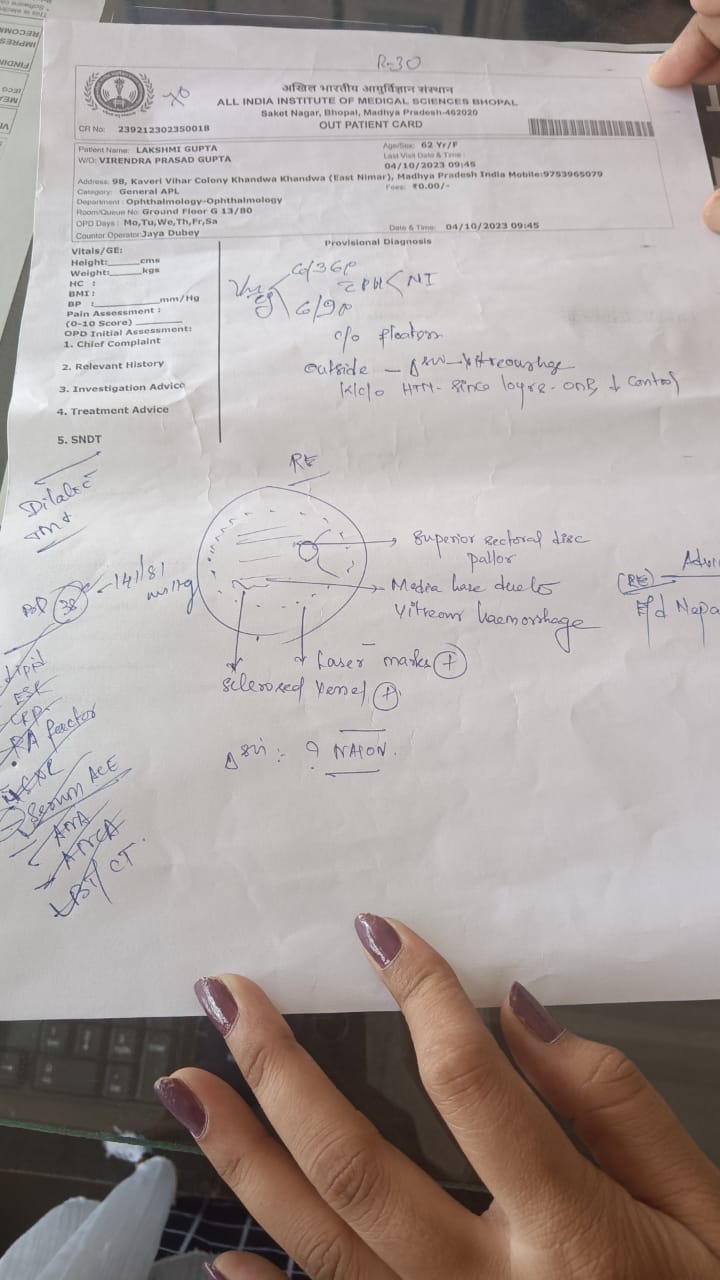 R-30
अखिल भारतीय आयुर्विज्ञान संस्थान
ALL INDIA INSTITUTE OF MEDICAL SCIENCES BHOPAL
Saket Nagar, Bhopal, Madhya Pradesh-462020
OUT PATIENT CARD
CR No: 239212302350018
Patient Name: LAKSHMI GUPTA
Age/Sex: 62 Yr/F
W/O: VIRENDRA PRASAD GUPTA
Last Visit Date & Time :
04/10/2023 09:45
Address: 98, Kaveri Vihar Colony Khandwa Khandwa (East Nimar), Madhya Pradesh India Mobile:9753965079
Category: General APL
Fees: ₹0.00/-
Department : Ophthalmology-Ophthalmology
Room/Queue No: Ground Floor G 13/80
OPD Days : Mo,Tu,We,Th,Fr,Sa
Date & Time: 04/10/2023 09:45
Counter Operator: Jaya Dubey
Provisional Diagnosis
Vitals/GE:
Height:_____cms
Weight:_____kgs
HC :
BMI :
BP :__________mm/Hg
Pain Assessment :
(0-10 Score) ______
OPD Initial Assessment:
1. Chief Complaint
2. Relevant History
3. Investigation Advice
4. Treatment Advice
5. SNDT
6/36P
PH < NI
6/9P
c/o floaters
outside -
K/c/o HTN - since 10yrs -
control
RE
Superior sectoral disc
pallor
Media haze due to
Vitreous haemorrhage
Laser marks +
Sclerosed Vessel +
? NAION.
141/81
mmHg
38
Lipid
ESR
CRP
RA factor
Serum ACE
ANA
ANCA
BT/CT.
(RE)